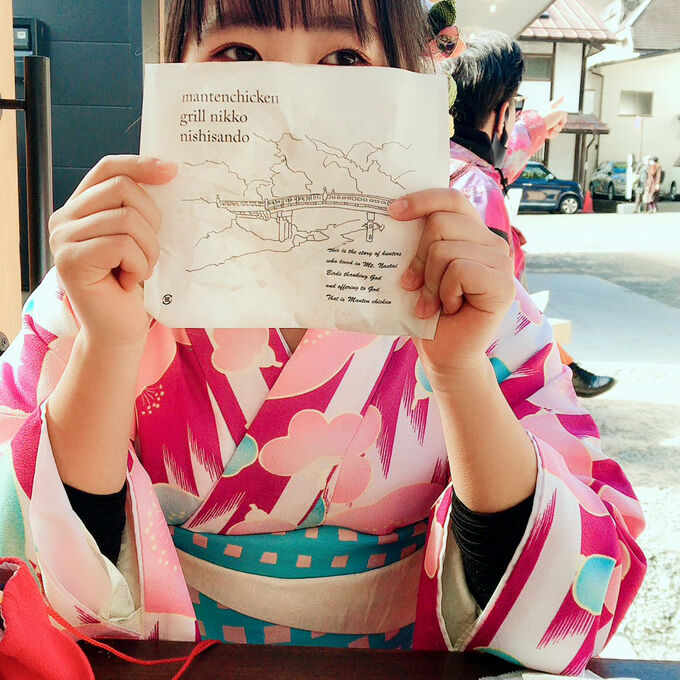 mantenchicken
grill nikko
nishisando
This is the story of hunters
who lived in Mt. Nantai
Birds thanking God
and offering to God
That is Manten chicken